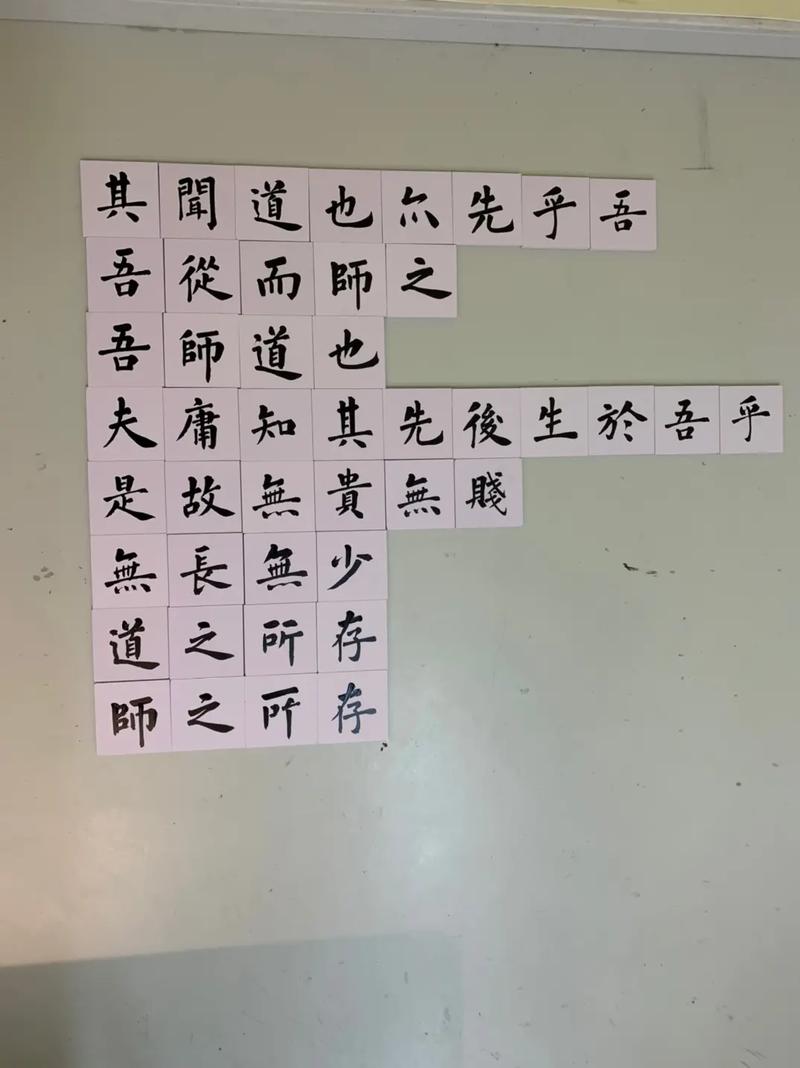 其聞道也尒先乎吾
吾從而師之
吾師道也
夫庸知其先後生於吾乎
是故無貴無賤
無長無少
道之所存
師之所存